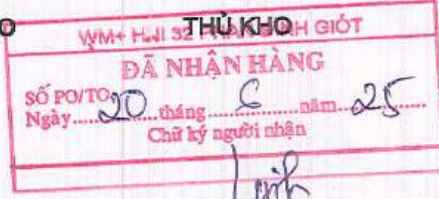 THỦ KHO
WM+ HNI 32 PHAN ĐÌNH GIÓT
ĐÃ NHẬN HÀNG
SỐ PO/TO
Ngày 20 tháng 6 năm 25
Chữ ký người nhận
Linh